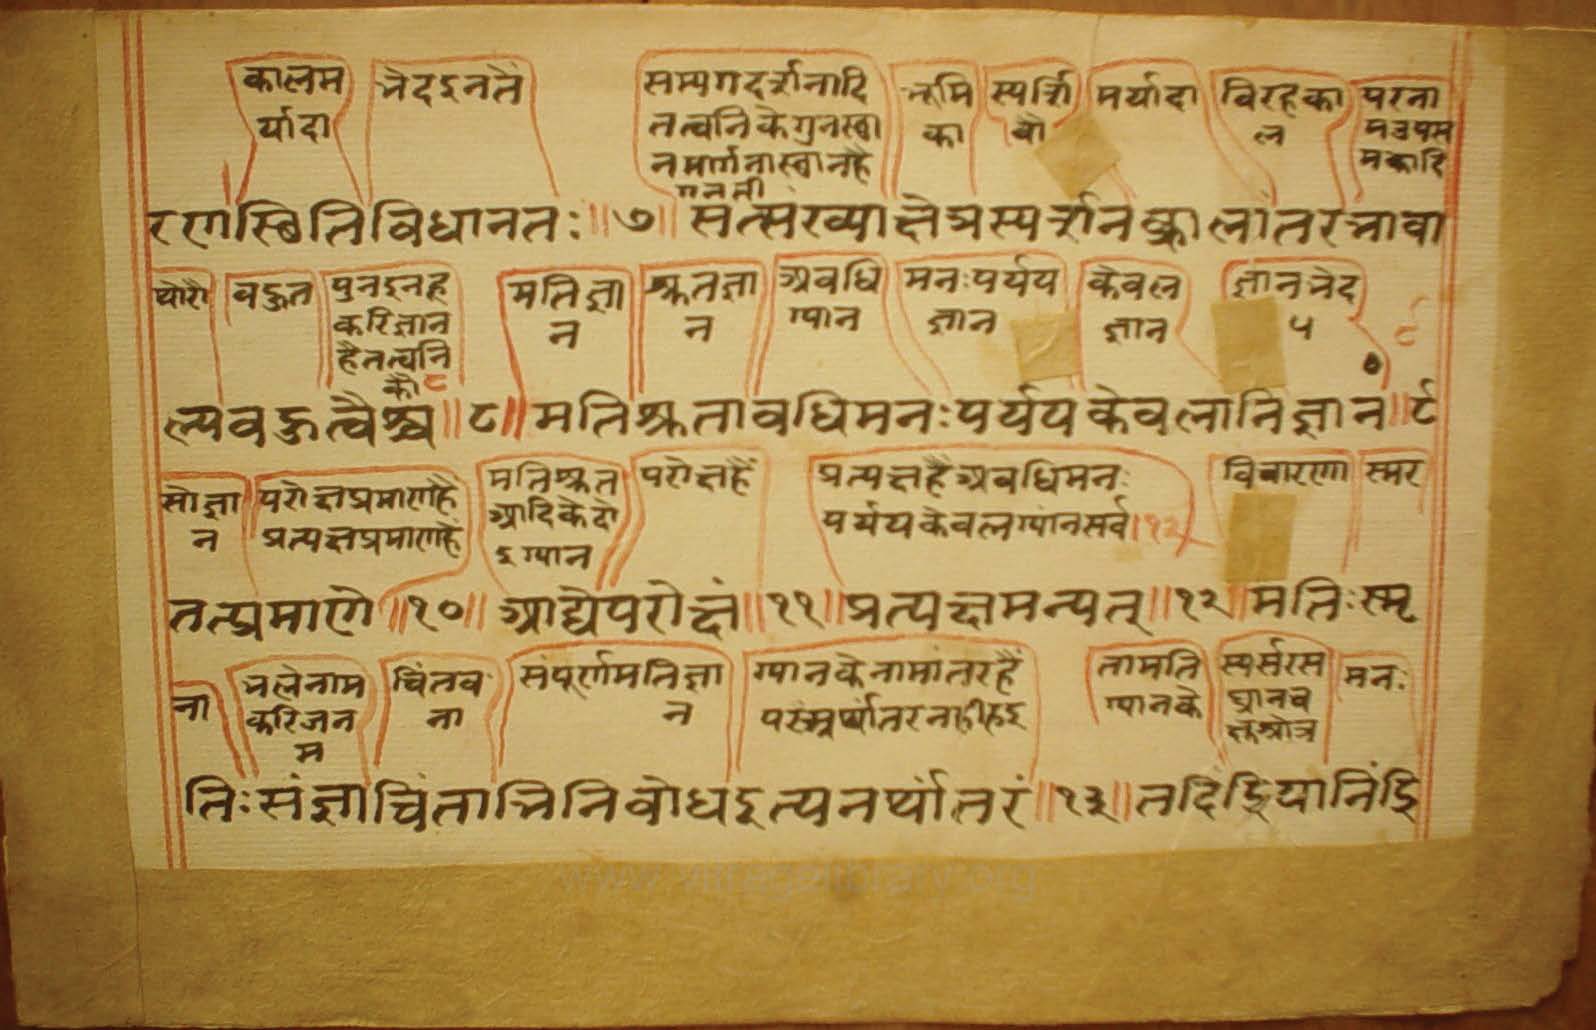 कालम भेदइनतै सम्यगदर्शनादि भूमि स्पर्शि मर्यादा विरहका परना
र्यादा तत्वनिके गुनस्था का वो ल मउपस
नमार्गनास्थानहै मकादि
गनती
रणस्थितिविधानतः ॥७॥ सत्संख्याक्षेत्रस्पर्शनकालांतरभावा
थोरो बहुत पुनइनह मतिज्ञा श्रुतज्ञा अवधि मनःपर्यय केवल ज्ञानभेद
करिज्ञान न न ग्यान ज्ञान ज्ञान ५ ९
हैतत्वनि
कौ ८
ल्पबहुत्वैश्च ॥८॥ मतिश्रुतावधिमनःपर्ययकेवलानिज्ञान ॥९
सोज्ञा परोक्षप्रमाणहै मतिश्रुत परोक्षहैं प्रत्यक्षहैअवधिमनः विचारणा स्मर
न प्रत्यक्षप्रमाणहै आदिकेदो पर्ययकेवलग्यांनसर्व ।१२
इग्यान
तत्प्रमाणे ॥१०॥ आद्येपरोक्षं ॥११॥ प्रत्यक्षमन्यत् ॥१२॥ मतिःस्मृ
ना भलेनाम चिंतव संपूर्णमतिज्ञा ग्यानकेनामांतरहैं तामति स्पर्सरस मनः
करिजन ना न परंतुअर्थांतरनाहीहइ ग्यानके घ्रानच
म क्षुश्रोत्र
तिःसंज्ञाचिंताभिनिबोधइत्यनर्थांतरं ॥१३॥ तदिंद्रियानिंद्रि
www.vitragelibrary.org